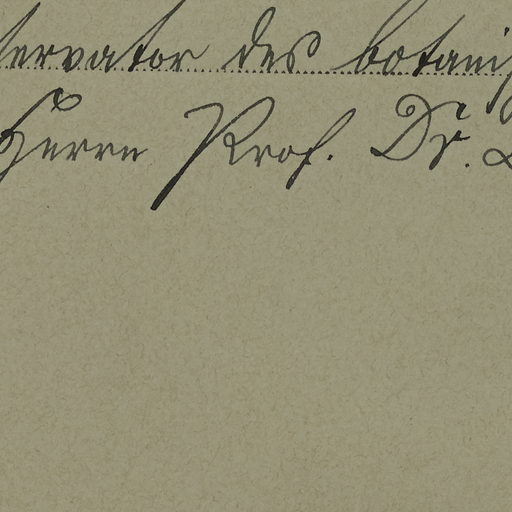 servator des botani
Herrn Prof. Dr.